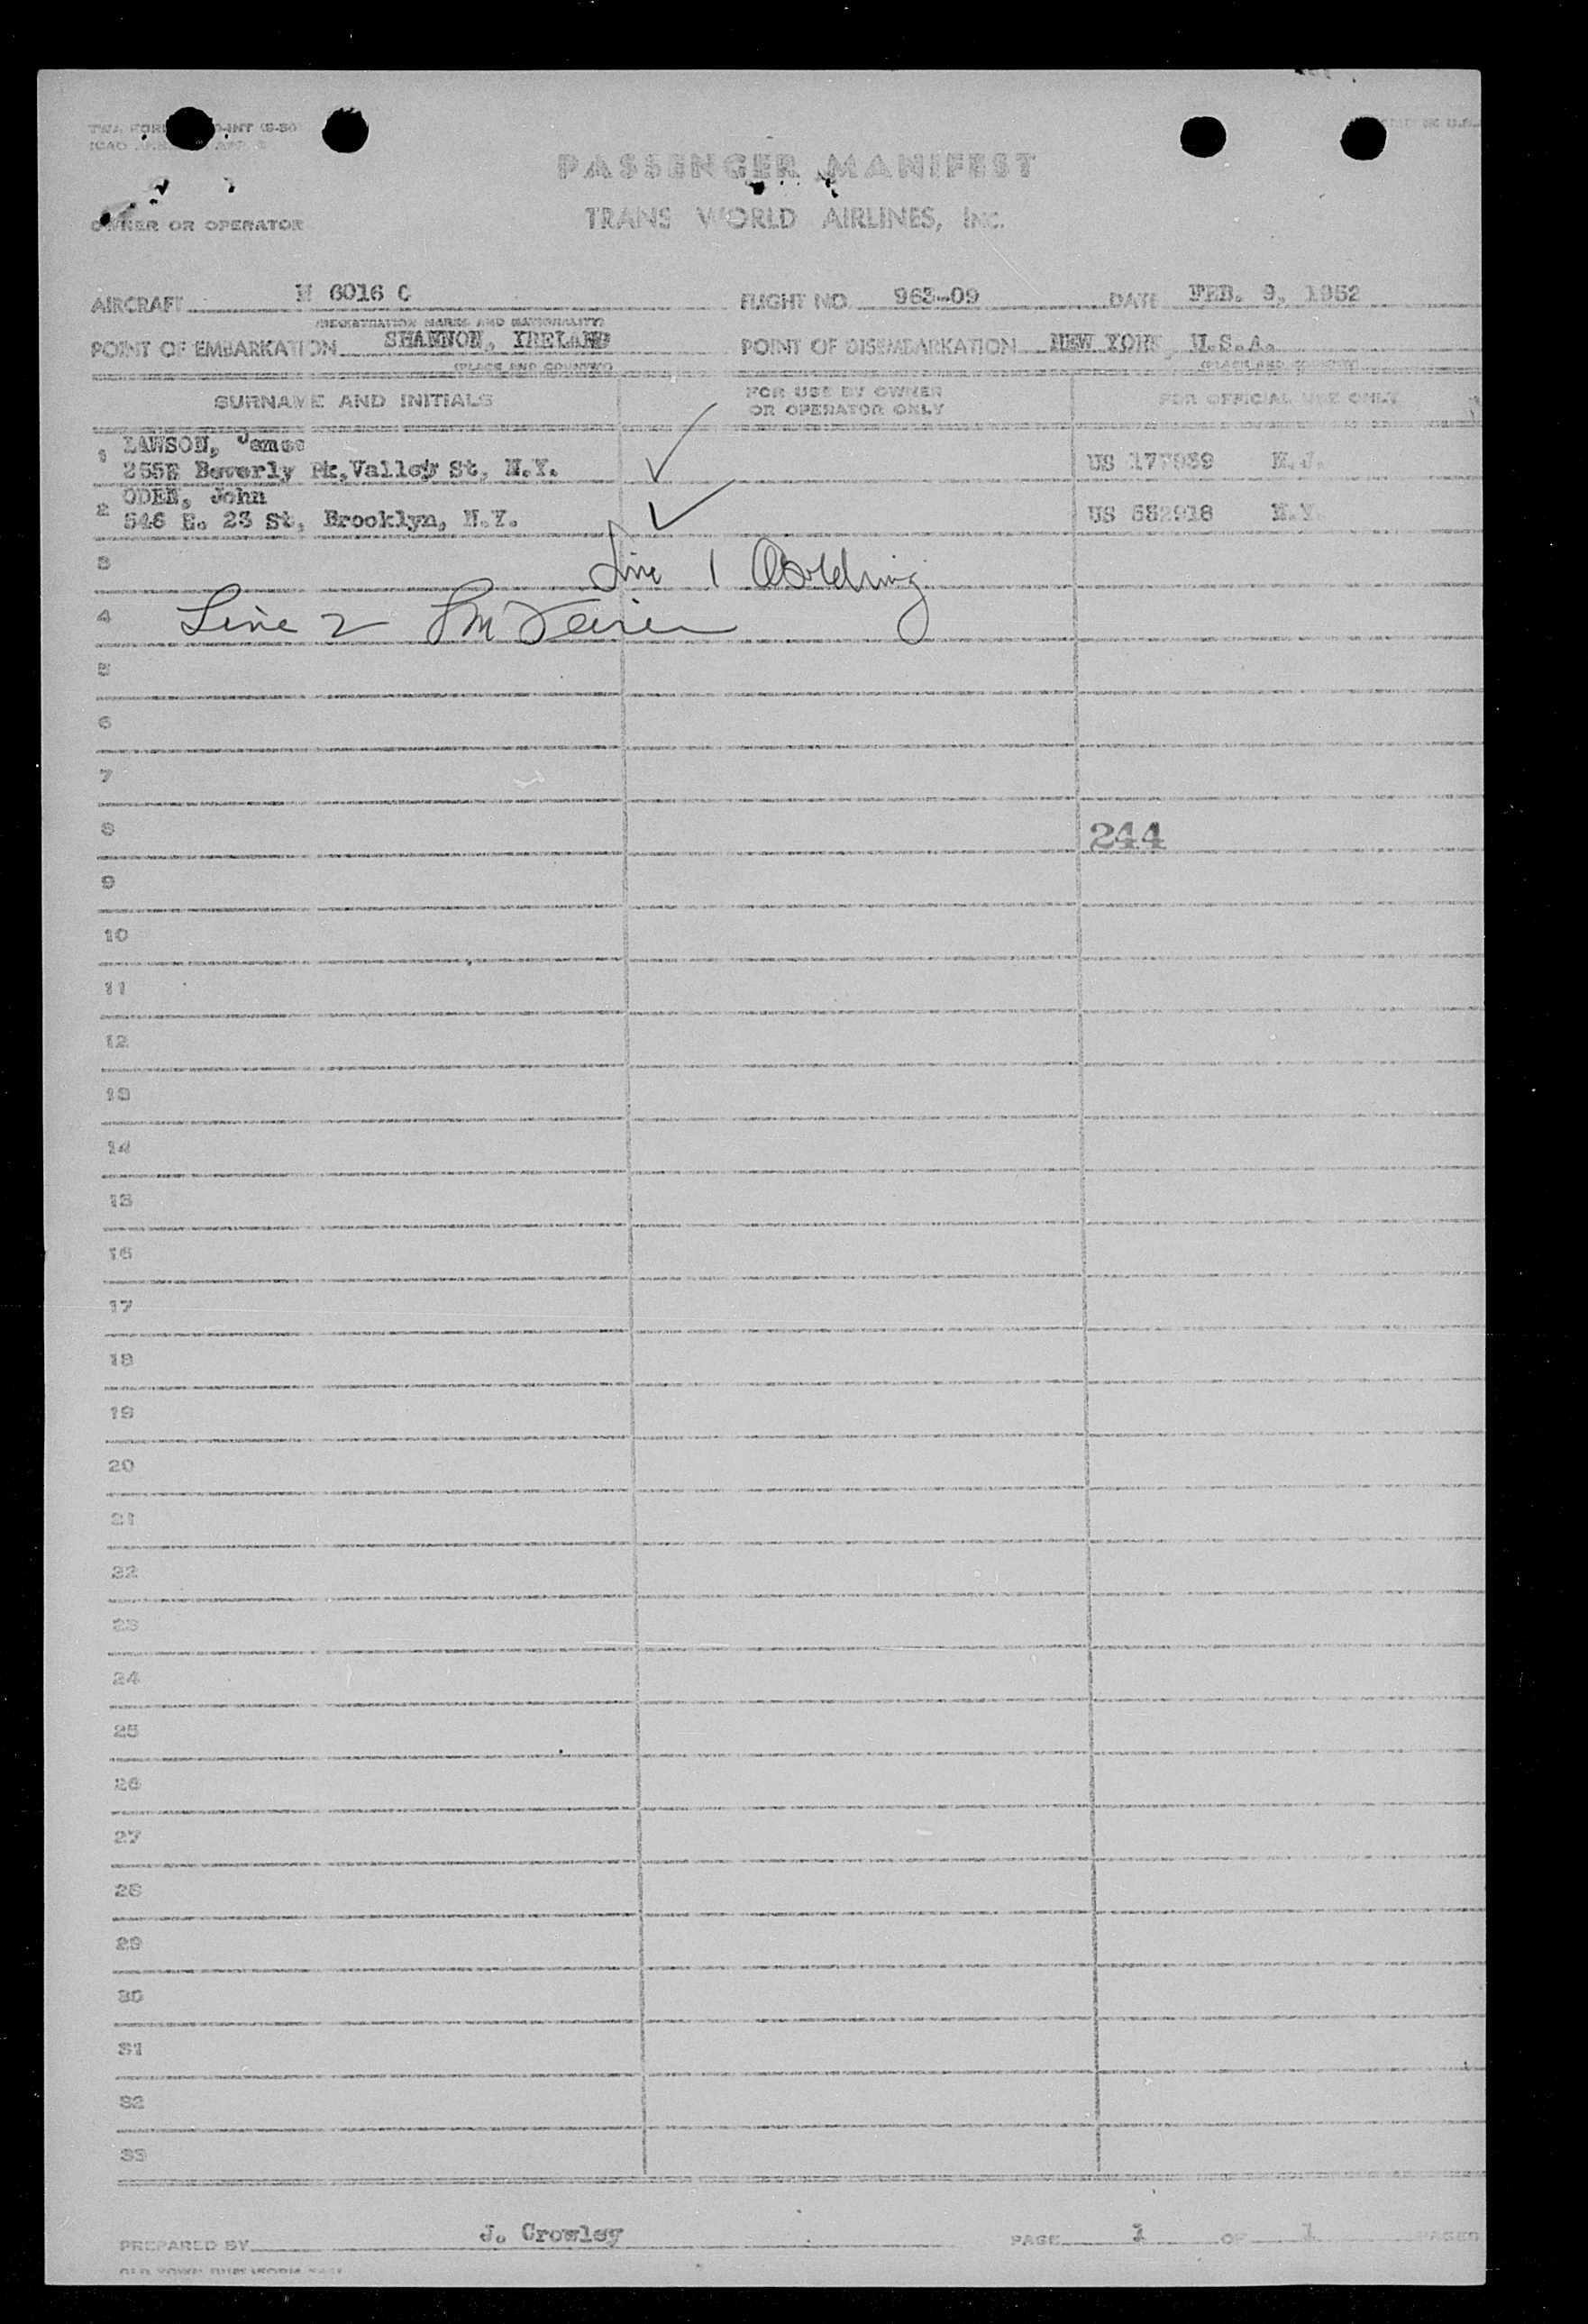 PASSENGER MANIFEST
TRANS WORLD AIRLINES, Inc.
OWNER OR OPERATOR
AIRCRAFT N 6016 C FLIGHT NO. 963-09 DATE FEB. 9, 1952
(REGISTRATION MARKS AND NATIONALITY)
POINT OF EMBARKATION SHANNON, IRELAND POINT OF DISEMBARKATION NEW YORK, U.S.A.
(PLACE AND COUNTRY) (PLACE AND COUNTRY)
SURNAME AND INITIALS FOR USE BY OWNER OR OPERATOR ONLY FOR OFFICIAL USE ONLY
1 LAWSON, James
255E Beverly Pk, Valley St, N.Y. US N.J.
2 ODEN, John
546 E. 23 St, Brooklyn, N.Y. US N.Y.
3 Line 1
4 Line 2
5
6
7
8 244
9
10
11
12
13
14
15
16
17
18
19
20
21
22
23
24
25
26
27
28
29
30
31
32
33
PREPARED BY J. Crowley PAGE 1 OF 1 PAGES